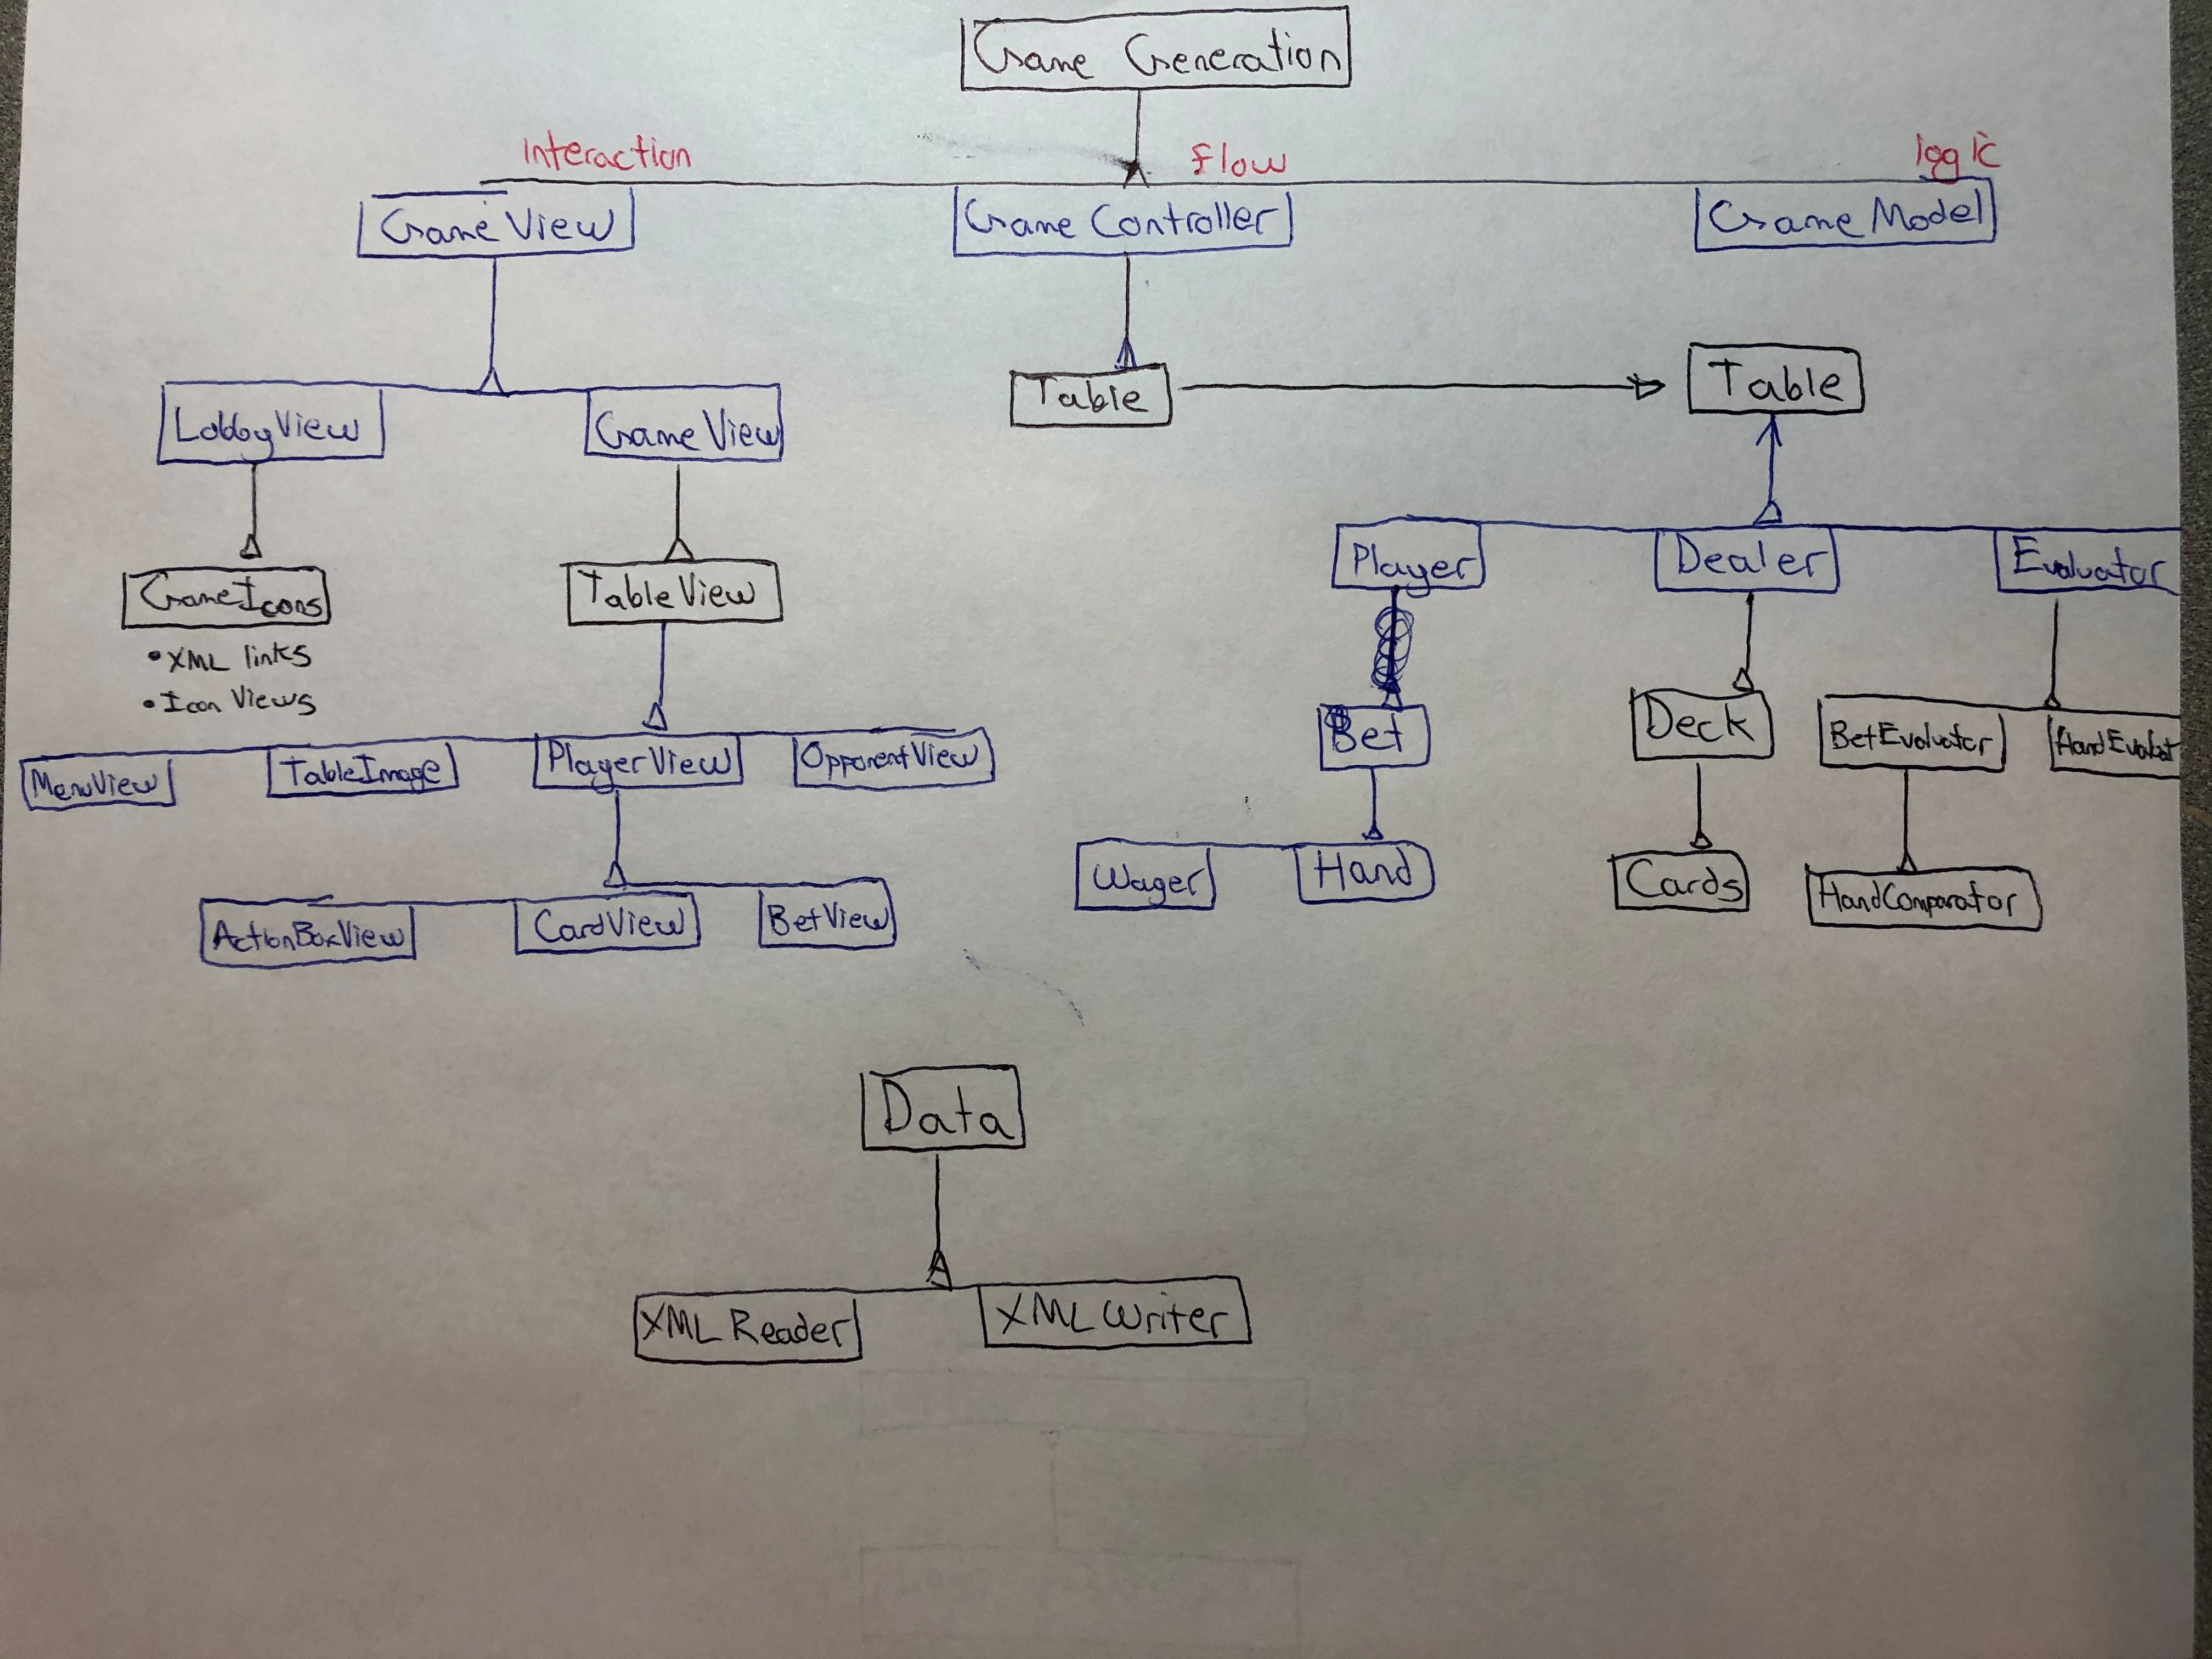 Game Generation
interaction
Flow
logic
Game View
Game Controller
Game Model
LobbyView
Game View
Table
Table
GameIcons
• XML links
• Icon Views
TableView
Player
Dealer
Evaluator
MenuView
TableImage
PlayerView
OpponentView
Bet
Deck
BetEvaluator
HandEvaluat
ActionBoxView
CardView
BetView
Wager
Hand
Cards
HandComparator
Data
XML Reader
XML Writer